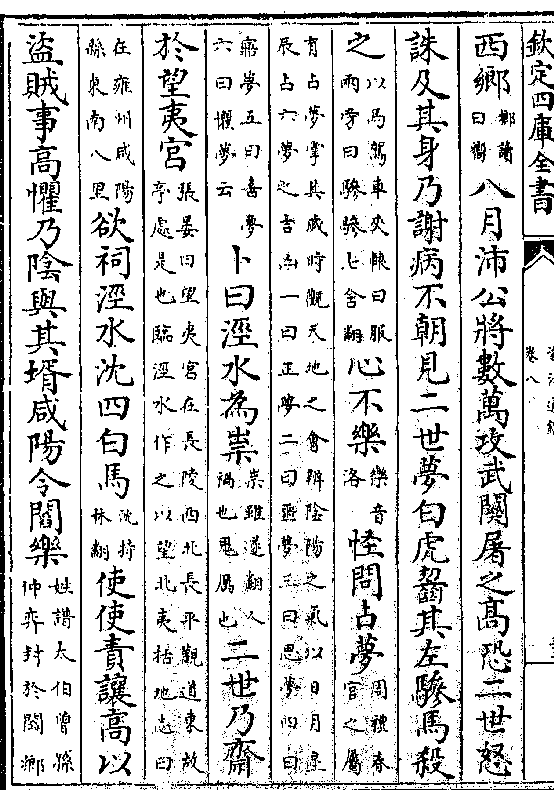 欽定四庫全書
卷八
西鄉鄉讀曰嚮八月沛公將數萬攻武關屠之高恐二世怒
誅及其身乃謝病不朝見二世夢白虎齧其左驂馬殺
之以馬駕車夾轅曰服兩旁曰驂驂七舍翻心不樂樂音洛怪問占夢周禮春官之屬
有占夢掌其歲時觀天地之會辨陰陽之氣以日月星辰占六夢之吉凶一曰正夢二曰噩夢三曰思夢四曰
寤夢五曰喜夢六曰懼夢云卜曰涇水為祟祟雖遂翻人禍也鬼厲也二世乃齋
於望夷宮張晏曰望夷宮在長陵西北長平觀道東故亭處是也臨涇水作之以望北夷括地志曰
在雍州咸陽縣東南八里欲祠涇水沈四白馬沈持林翻使使責讓高以
盜賊事高懼乃陰與其壻咸陽令閻樂姓譜太伯曾孫仲奕封於閻鄉